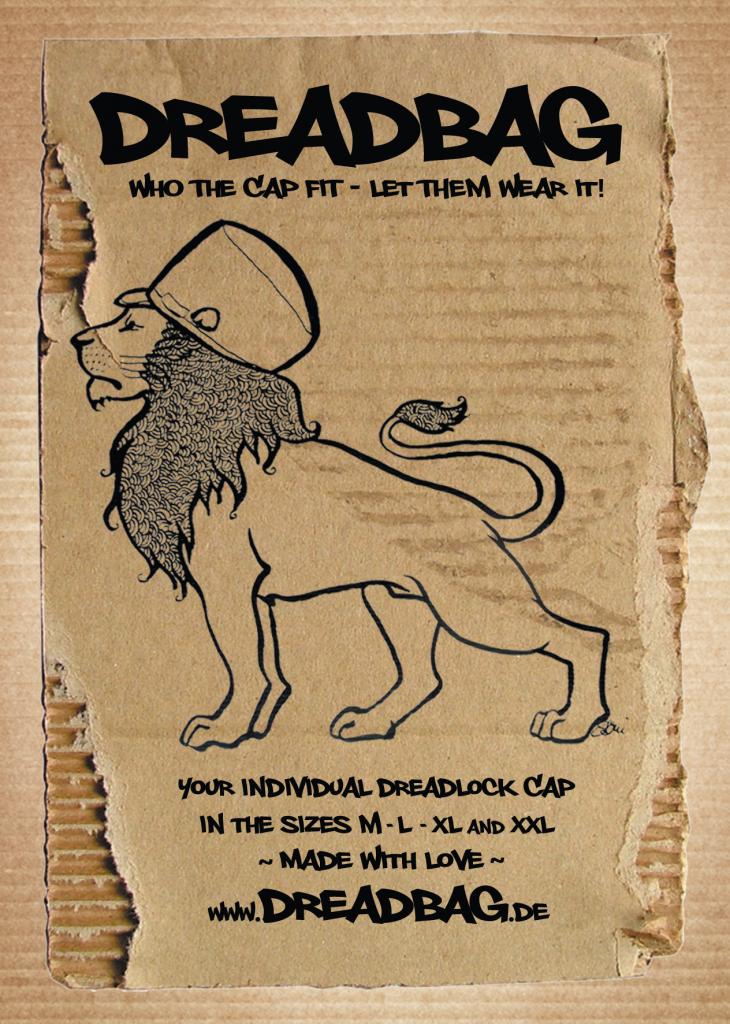 DREADBAG
WHO THE CAP FIT - LET THEM WEAR IT!
YOUR INDIVIDUAL DREADLOCK CAP
IN THE SIZES M - L - XL AND XXL
~ MADE WITH LOVE ~
WWW.DREADBAG.DE